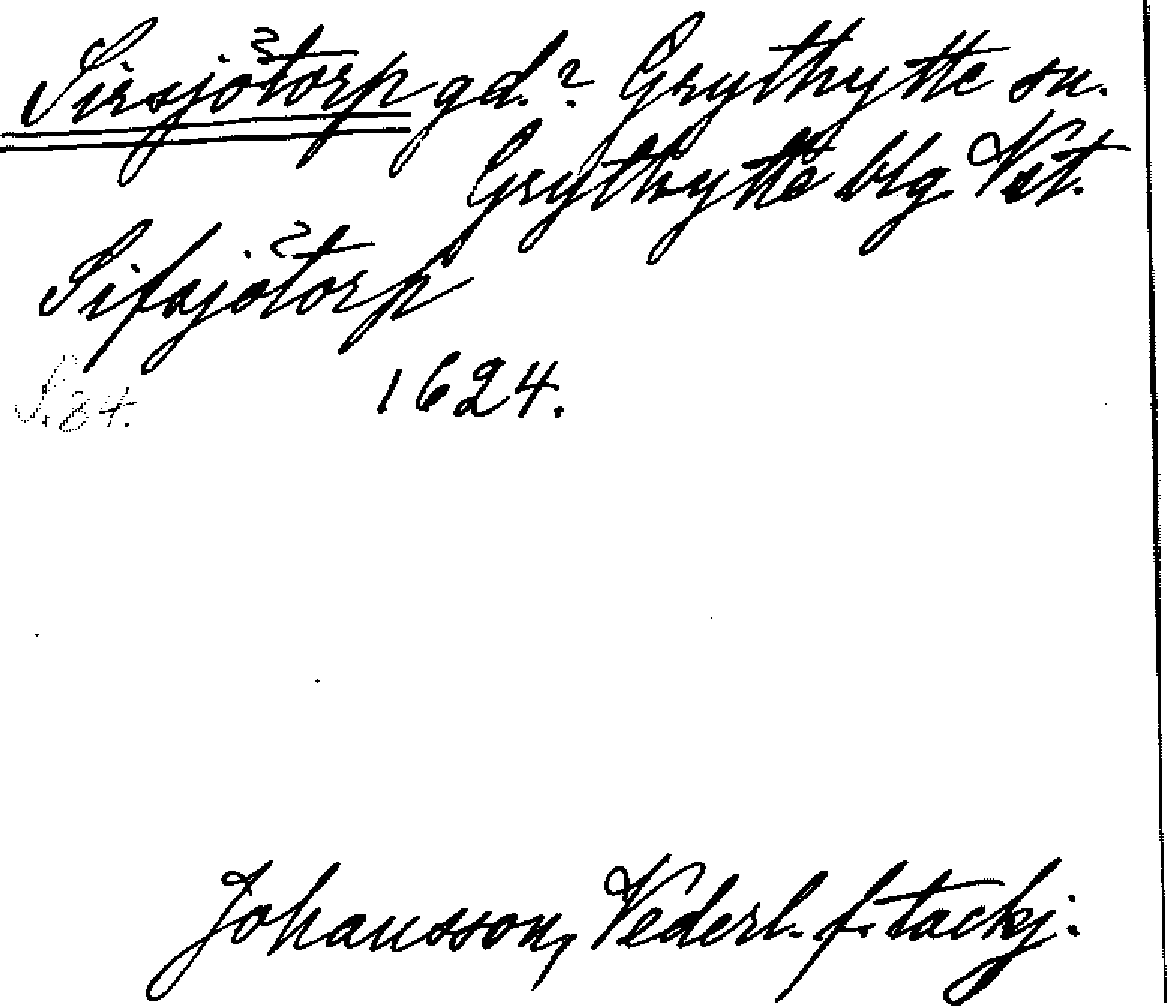 Sirsjötorp gd.? Grythytte sn.
Grythytte blg Vst.
Sifsjötorp
S. 84. 1624.
Johansson, Vederl. f. tackj.